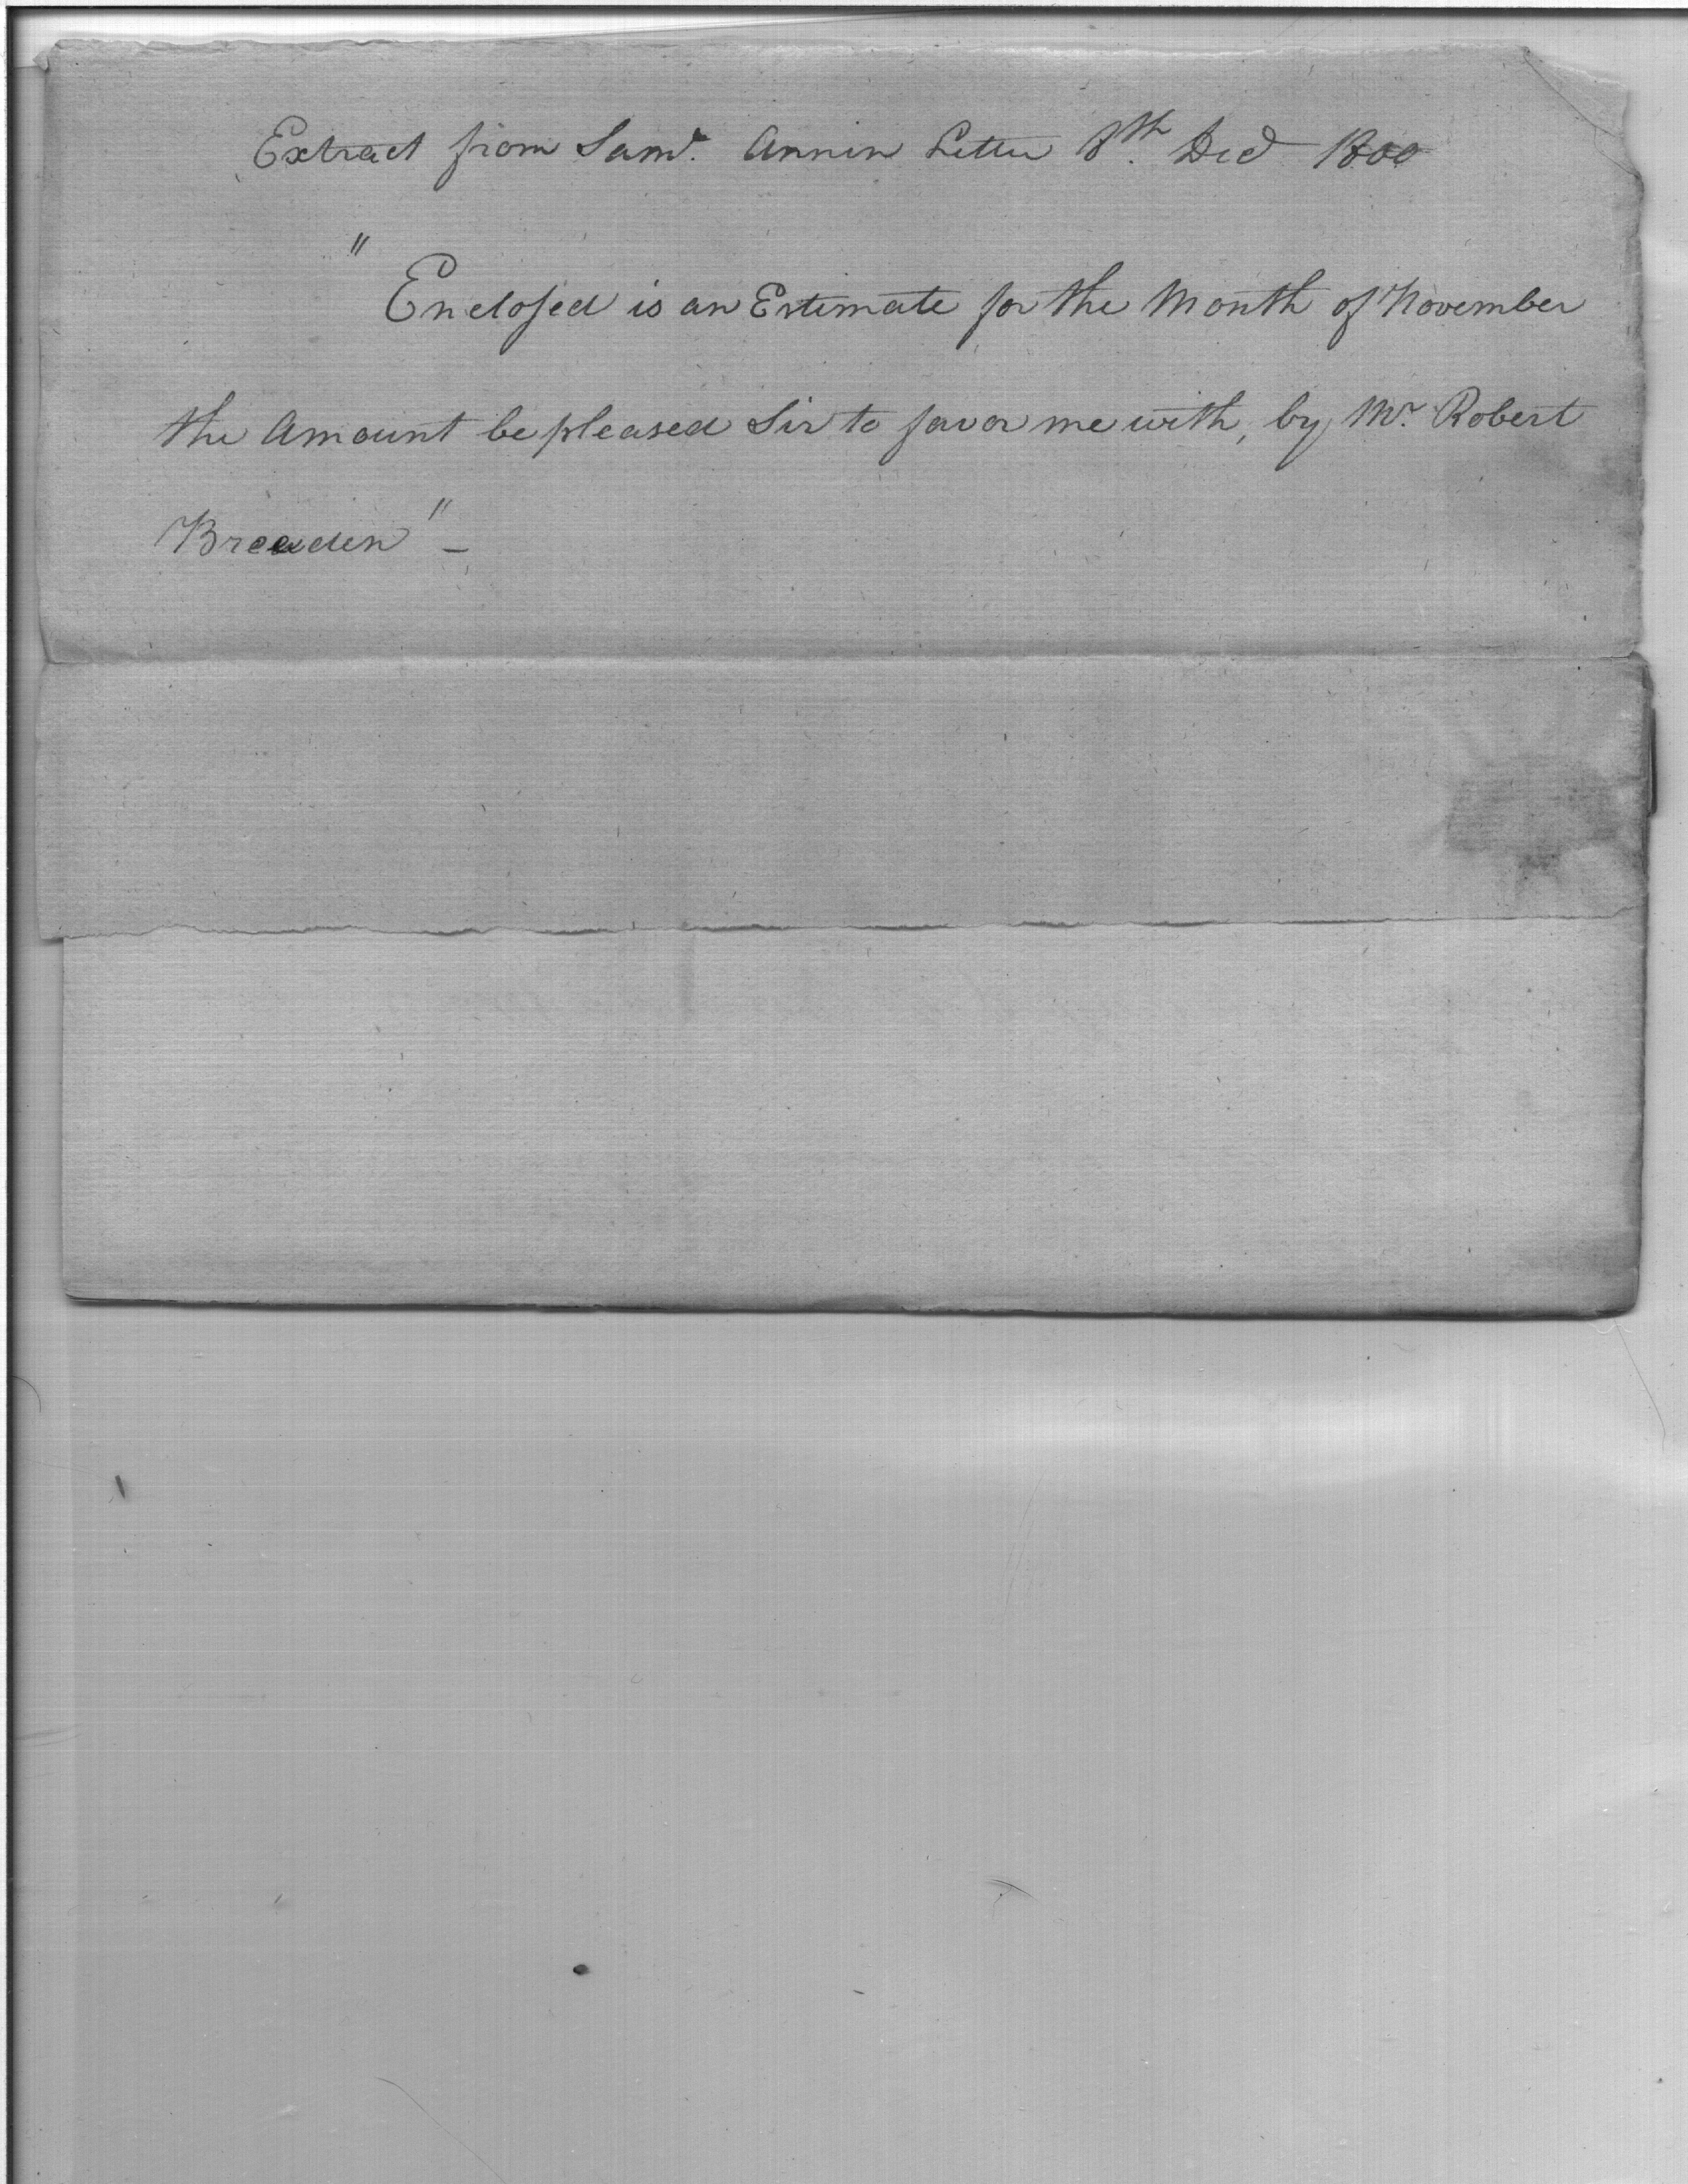 Extract from Saml. Annin Letter 8th. Decr 1800
"Enclosed is an Estimate for the Month of November
the Amount be pleased Sir to favor me with, by Mr. Robert
Breaden" –